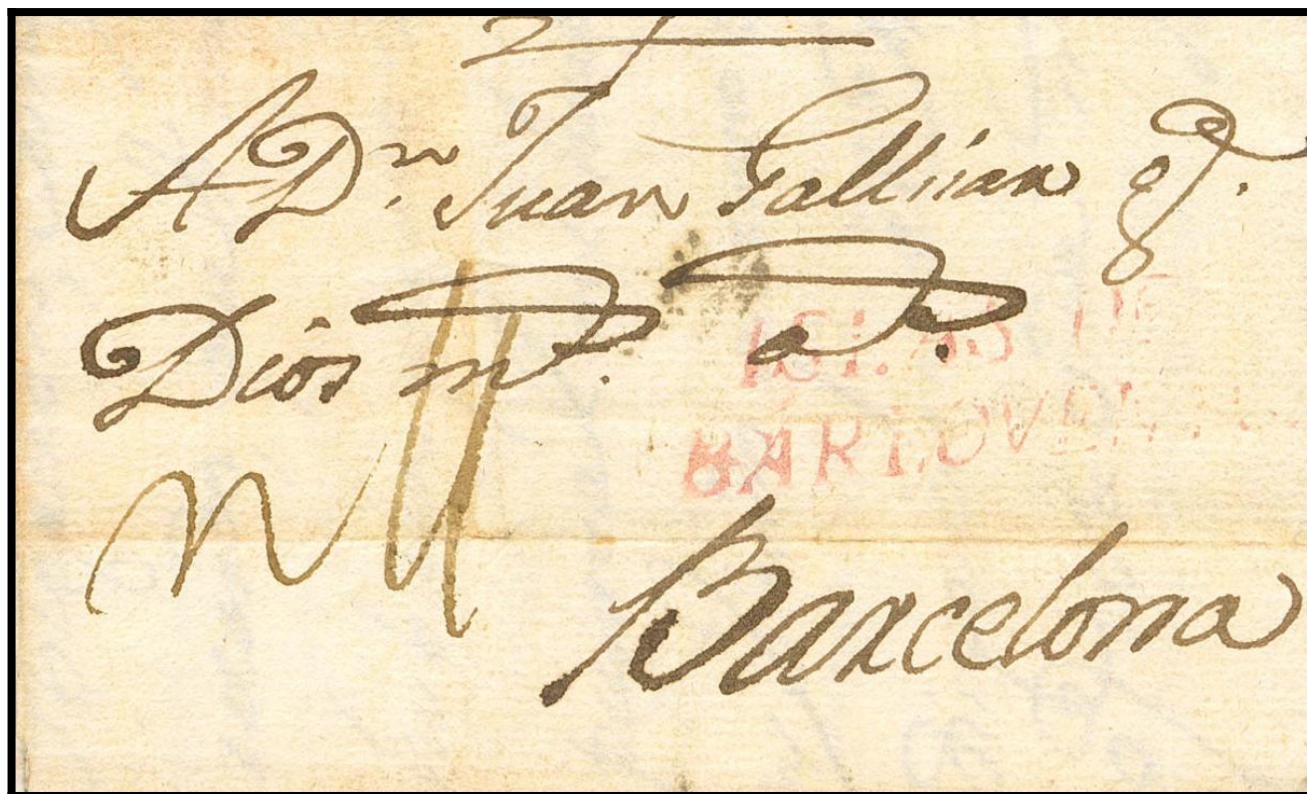 A Dn. Juan Gallisan qe.
Dios ms. as.
ISLAS DE
BARLOVEN
Barcelona